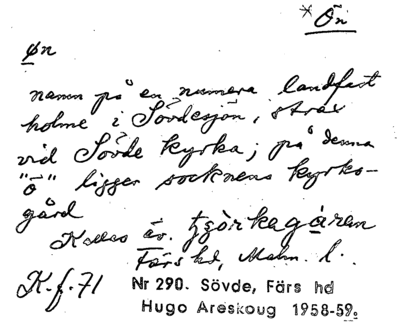 *Ön
øn
namn på en numera landfast
holme i Sövdesjön, strax
vid Sövde kyrka; på denna
"ö" ligger socknens kyrko-
gård
Kallas äv. tjörkagåren
Färs hd, Malm. l.
K.f.71
Nr 290. Sövde, Färs hd
Hugo Areskoug 1958-59.